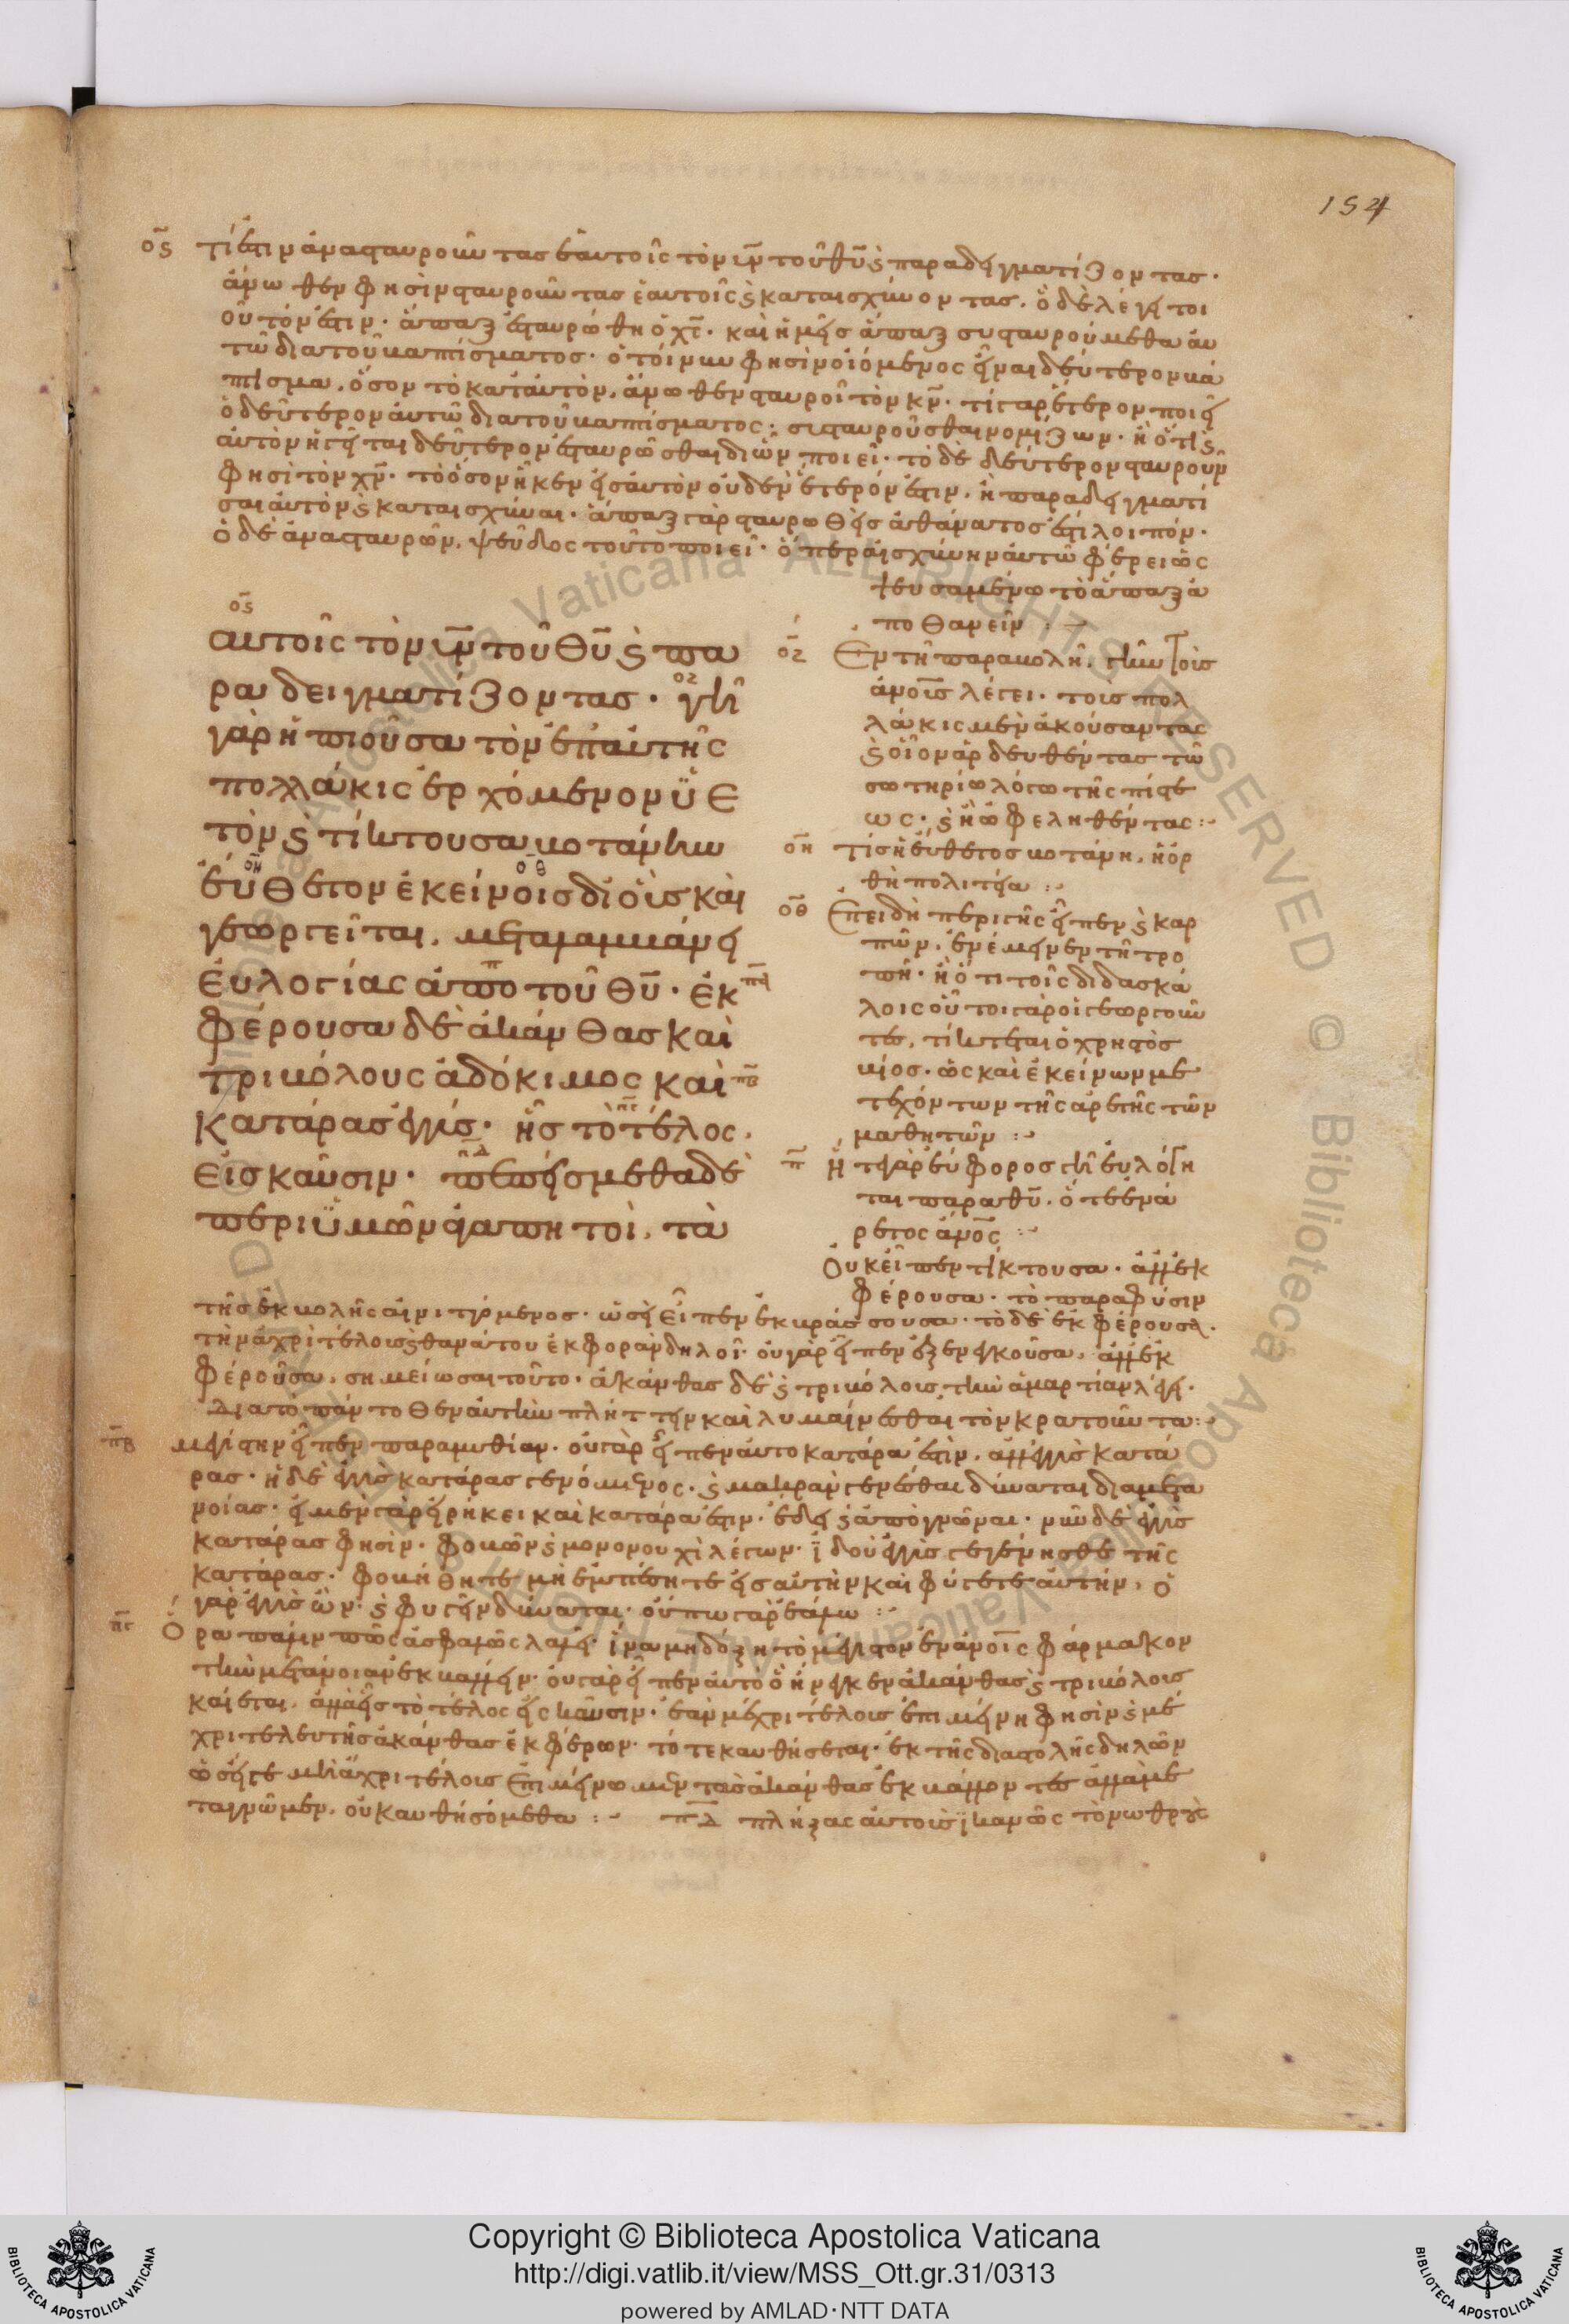 154
ος τί ἐστιν ἀνασταυροῦντας ἑαυτοῖς τὸν ιν τοῦ θυ ϗ παραδειγματίζοντας·
ἄνωθεν φησὶν σταυροῦντας ἑαυτοῖς ϗ καταισχύνοντας. ὃ δὲ λέγει τοι
οῦτόν ἐστιν. ἅπαξ ἐσταυρώθη ὁ χς. καὶ ἡμεῖς ἅπαξ συσταυρούμεθα αυ
τῶ διὰ τοῦ βαπτίσματος. ὁ τοίνυν φησὶν οἰόμενος εἶναι δεύτερον βά
πτισμα, ὅσον τὸ κατ' αὐτὸν, ἄνωθεν σταυροῖ τὸν κν. τί γὰρ ἕτερον ποιεῖ
ὁ δεύτερον αὐτῶ διὰ τοῦ βαπτίσματος· συσταυροῦσθαι νομίζων. ἢ ὅτι ϗ
αὐτὸν ἡγεῖται δεύτερον ἐσταυρῶσθαι δι' ὧν ποιεῖ. τὸ δὲ δεύτερον σταυροῦν
φησὶ τὸν χν. τὸ ὅσον ἧκεν εἰς αὐτὸν οὐδὲν ἕτερόν ἐστιν, ἢ παραδειγματί
σαι αὐτὸν ϗ καταισχύναι. ἅπαξ γὰρ σταυρωθεὶς ἀθάνατός ἐστι λοιπόν.
ὁ δὲ ἀνασταυρῶν, ψεῦδος τοῦτο ποιεῖ. ὅπερ αἰσχύνην αὐτῶ φέρει ὡς
ψευσαμένω τὸ ἅπαξ ἀ
ποθανεῖν :
ος
αυτοῖς τὸν ιν τοῦ θυ ϗ πα
ραδειγματίζοντας. γῆ
γὰρ ἡ πιοῦσα τὸν ἐπ' αὐτῆς
πολλάκις ἐρχόμενον ὑε
τὸν ϗ τίκτουσα βοτάνην
εὔθετον ἐκείνοις δι' οὓς καὶ
γεωργεῖται, μεταλαμβάνει
εὐλογίας ἀπὸ τοῦ θυ. ἐκ
φέρουσα δὲ ἀκάνθας καὶ
τριβόλους ἀδόκιμος καὶ
κατάρας ἐγγύς. ἧς τὸ τέλος
εἰς καῦσιν. πεπείσμεθα δὲ
περὶ ὑμῶν ἀγαπητοὶ, τὰ
οζ Ἐν τῆ παραβολῆ, γῆν τοὺς
ἀνους λέγει. τοὺς πολ
λάκις μὲν ἀκούσαντας
ϗ οἷον ἀρδευθέντας τῶ
σωτηρίω λόγω τῆς πίστε
ως. ϗ ἢ ὠφεληθέντας :
οη τίς ἡ εὔθετος βοτάνη, ἡ ὀρ
θὴ πολιτεία :
οθ Ἐπειδὴ περὶ γῆς εἶπεν ϗ καρ
πῶν, ἐνέμεινεν τῆ τρο
πῆ. ἢ ὅτι τοῖς διδασκά
λοις οὗτοι γὰρ οἱ γεωργοῦν
τες, τίκτεται ὁ χρηστὸς
βίος. ὡς καὶ ἐκείνων με
τεχόντων τῆς ἀρετῆς τῶν
μαθητῶν :
π Ἡ γὰρ εὔφορος γῆ εὐλόγη
ται παρὰ θυ. ὅ τε ἐνά
ρετος ἀνος :
Οὐκ εἶπεν τίκτουσα. ἀλλ' ἐκ
φέρουσα. τὸ παραφύσιν
τῆς ἐκβολῆς αἰνιττόμενος. ὡσεὶ εἶπεν ἐκβράσσουσα. τὸ δὲ ἐκφέρουσα.
τὴν ἄχρι τέλους ϗ θανάτου ἐκφορὰν δηλοῖ. οὐ γὰρ εἶπεν ἐξενεγκοῦσα, ἀλλ' ἐκ
φέρουσα, σημείωσαι τοῦτο. ἀκάνθας δὲ ϗ τριβόλους, τὴν ἁμαρτίαν λέγει.
Διὰ τὸ πάντοθεν αὐτὴν πλήττειν καὶ λυμαίνεσθαι τὸν κρατοῦντα :
πβ μεγίστην εἶπεν παραμυθίαν. οὐ γὰρ εἶπεν αὐτὸ κατάρα ἐστὶν, ἀλλ' ἐγγὺς κατά
ρας. ὁ δὲ ἐγγὺς κατάρας γενόμενος. ϗ μακρὰν γενέσθαι δύναται διὰ μετα
νοίας. εἰ μὲν γὰρ εἰρήκει καὶ κατάρα ἐστιν. ἔδει ϗ ἀπογνῶναι. νῦν δὲ ἐγγὺς
κατάρας φησὶν. φοβῶν ϗ μονονουχὶ λέγων. ἰδοὺ ἐγγὺς γεγένησθε τῆς
κατάρας. φοβήθητε μὴ ἐμπέσητε εἰς αὐτὴν καὶ φύγετε αὐτὴν, ὁ
γὰρ ἐγγὺς ὢν. ϗ φυγεῖν δύναται. οὔπω γὰρ ἑάλω :
πγ Ὅρα πάλιν πῶς ἀσφαλῶς λαλεῖ. ἵνα μὴ δόξη τὸ μέγιστον ἐν ἀνοις φάρμακον
τὴν μετάνοιαν ἐκβάλλειν. οὐ γὰρ εἶπεν αὐτὸ ὃ ἤνεγκεν ἀκάνθας ϗ τριβόλους
καίεται, ἀλλὰ ἧς τὸ τέλος εἰς καῦσιν. ἐὰν μέχρι τέλους ἐπιμείνη φησὶν ϗ μέ
χρι τελευτῆς ἀκάνθας ἐκφέρων. τότε καυθήσεται. ἐκ τῆς διαστολῆς δηλῶν
ὡς εἴγε μὴ ἄχρι τέλους ἐπιμείνωμεν τὰς ἀκάνθας ἐκβάλλοντες ἀλλὰ με
ταγνῶμεν, οὐ καυθησόμεθα :  πδ πλήξας αὐτοὺς ἱκανῶς τὸ νωθροὺς
Copyright © Biblioteca Apostolica Vaticana
http://digi.vatlib.it/view/MSS_Ott.gr.31/0313
powered by AMLAD·NTT DATA